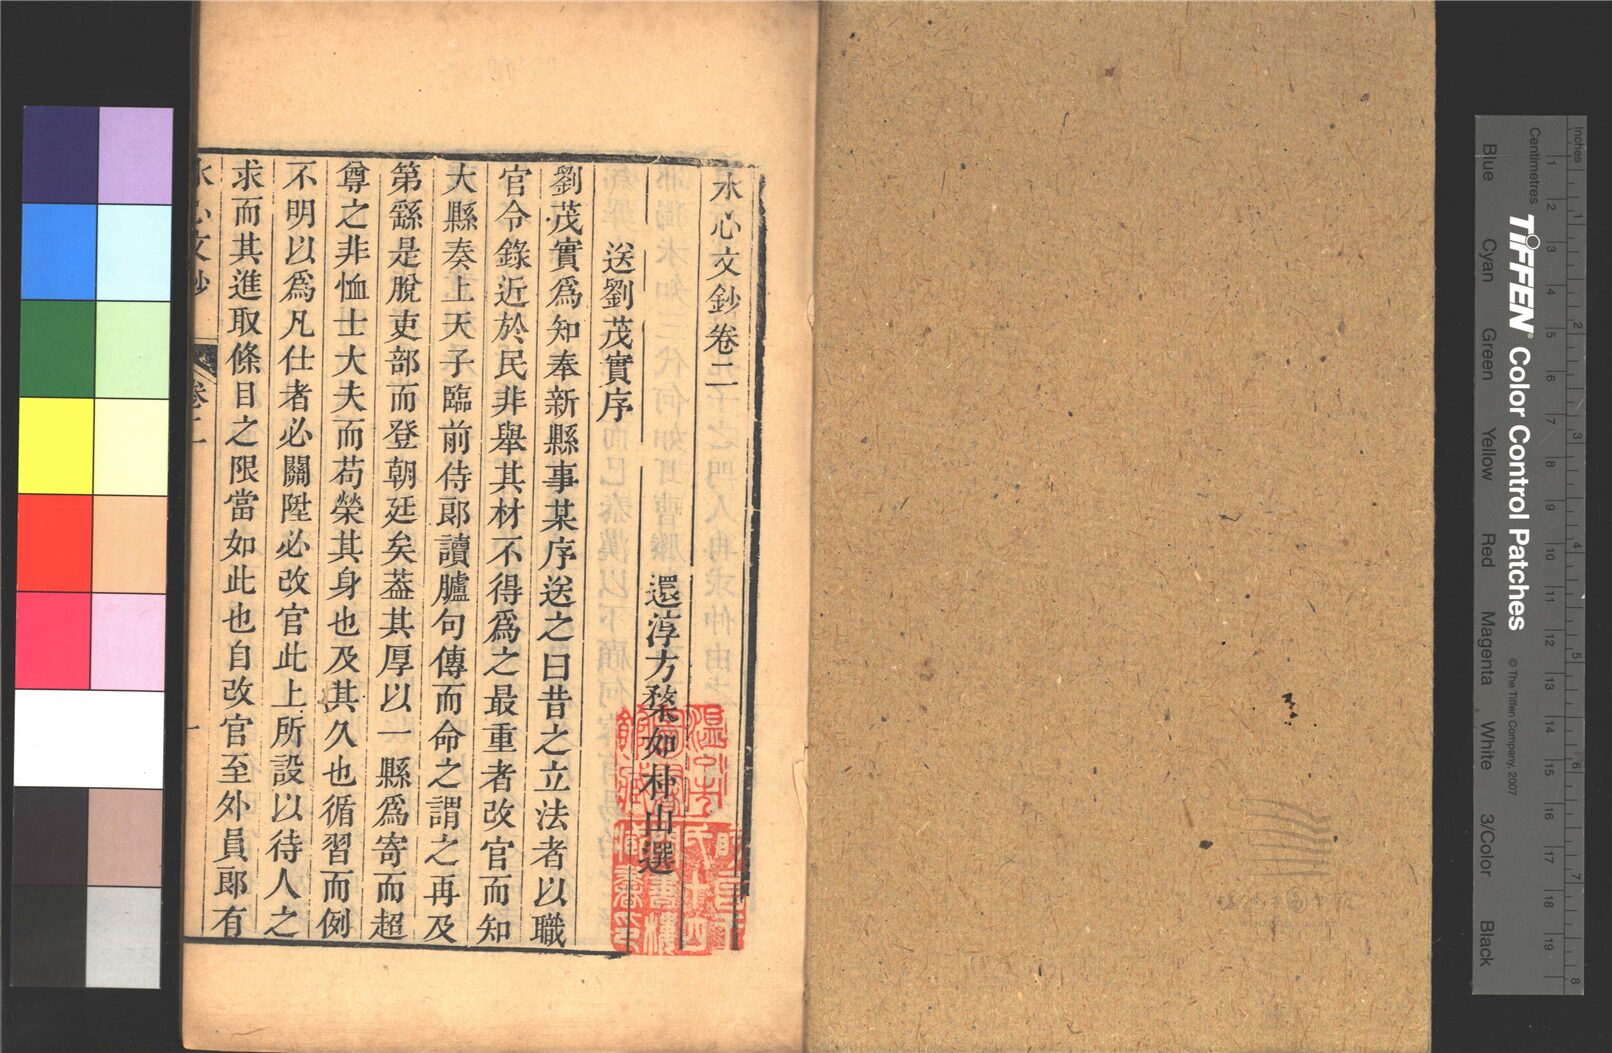 水心文鈔卷二
還淳方楘如朴山選
送劉茂實序
劉茂實爲知奉新縣事某序送之曰昔之立法者以職
官令錄近於民非舉其材不得爲之最重者改官而知
大縣奏上天子臨前侍郞讀臚句傳而命之謂之再及
第繇是脫吏部而登朝廷矣葢其厚以一縣爲寄而超
尊之非恤士大夫而苟榮其身也及其久也循習而例
不明以爲凡仕者必關陞必改官此上所設以待人之
求而其進取條目之限當如此也自改官至外員郞有
水心文鈔
卷二
一
Inches
Centimetres
TIFFEN Color Control Patches
© The Tiffen Company, 2007
Blue
Cyan
Green
Yellow
Red
Magenta
White
3/Color
Black